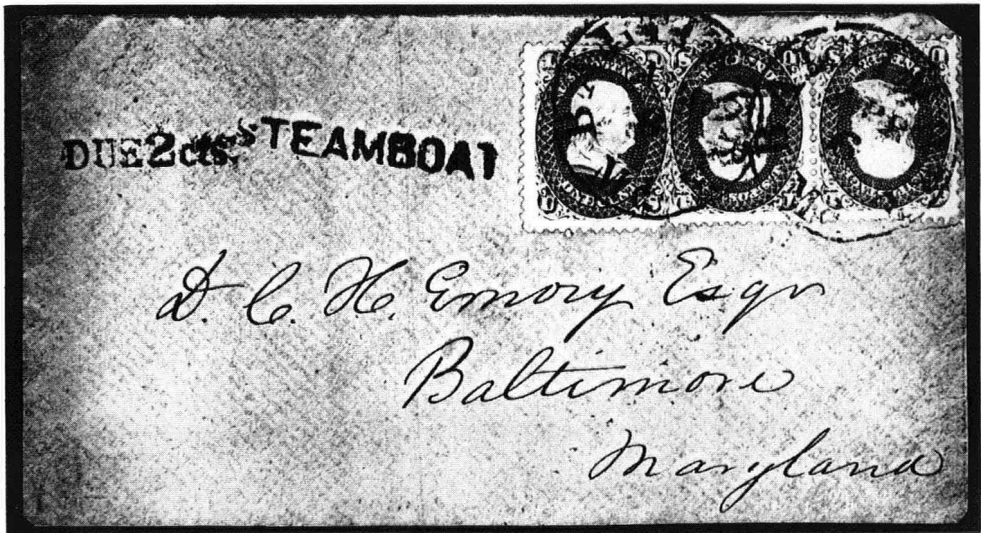 DUE 2 cts. STEAMBOAT
D. C. H. Emory Esqr
Baltimore
Maryland